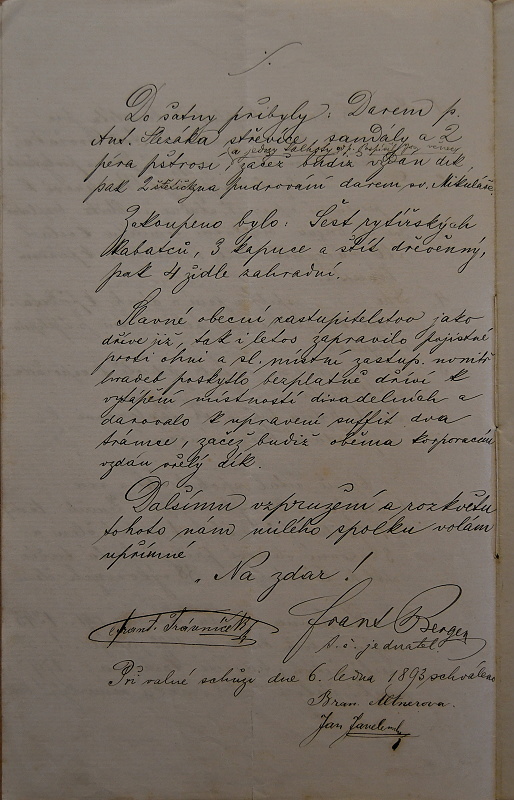 Do šatny přibyly: Darem p.
Ant. Slezáka střevíce, sandály a 2
a jedny kalhoty
péra pštrosí, začež budiž vzdán dík,
pak 2 štětičky na pudrování darem sv. Mikuláše.
Zakoupeno bylo: Šest rytířských
kabátců, 3 kapuce a štít dřevěnný,
pak 4 židle zahradní.
Slavné obecní zastupitelstvo jako
dříve již, tak i letos zapravilo pojistné
proti ohni a sl. místní zastup. uvnitř
hradeb poskytlo bezplatně dříví k
vytápění místností divadelních a
darovalo k upravení suffit dva
trámce, začež budiž oběma korporacím
vzdán vřelý dík.
Dalšímu vzpružení a rozkvětu
tohoto nám milého spolku volám
upřímné
„Na zdar!
Frant. Trávníček
Frant Bergen
t. č. jednatel.
Při valné schůzi dne 6. ledna 1893 schváleno
Altnerova.
Jan